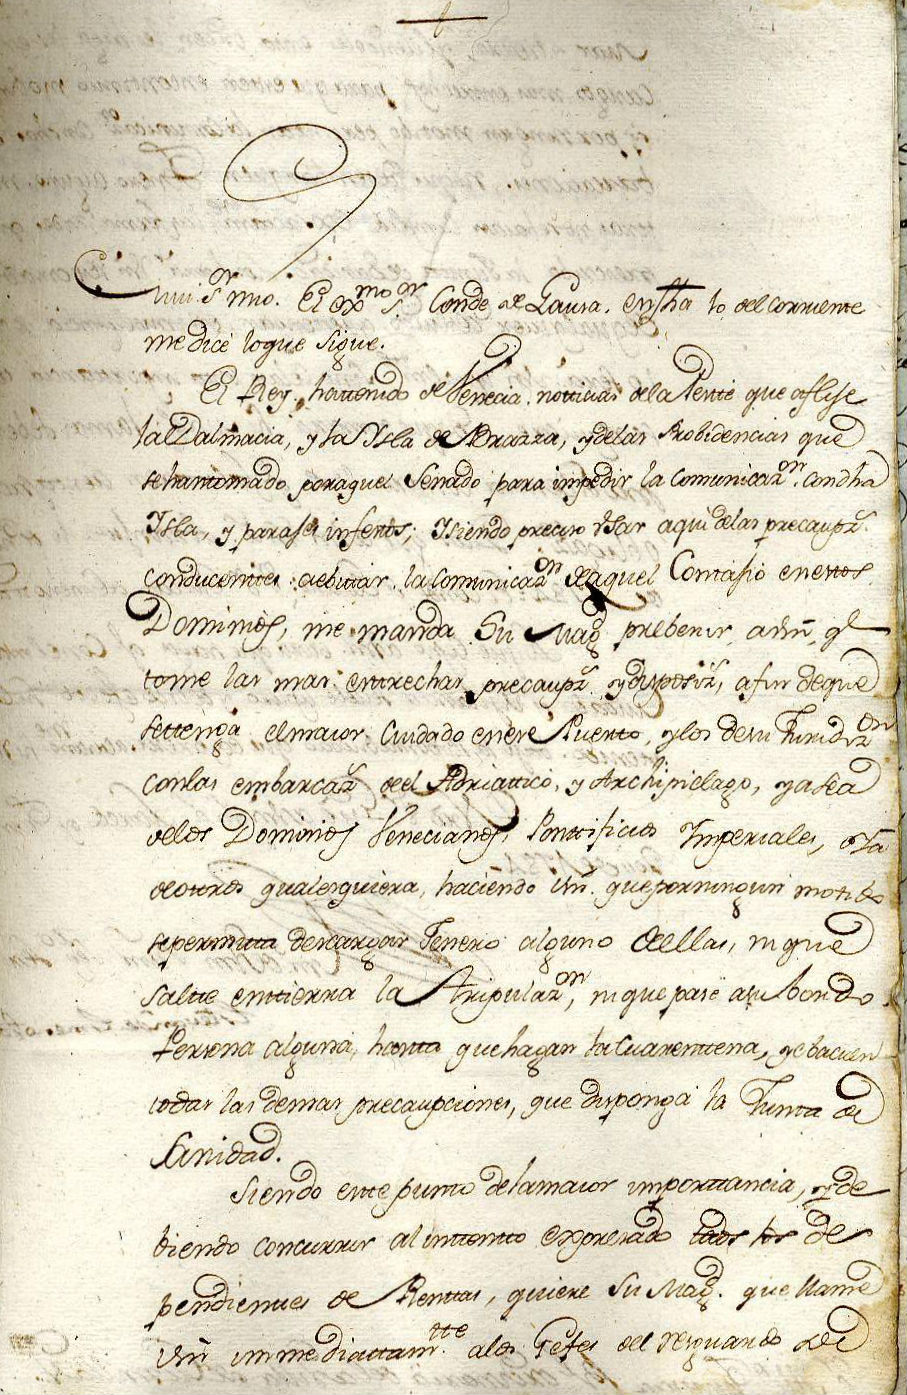 Mui Sr. mio. El Exmo. Sr. Conde de Gausa, en fha 10 del corriente
me dice lo que sigue.
El Rey, ha ttenido de Venecia notticias de la Peste que aflije
la Dalmacia, y la Ysla de Brazza, y de las Probidencias que
se han tomado por aquel Senado para impedir la comunicazon. con dha
Ysla, y parajes infectos; Y siendo preciso Vsar aqui de las precaupzs.
conducentes a evittar la comunicazon. de aquel Contajio en estos
Dominios, me manda Su Magd. prebenir a Vm, qe
tome las mas estrechas precaupzs. y disposizs, a fin de que
se ttenga el maior Cuidado en ese Puerto, y los de su Juridizon.
con las embarcazs. del Adriattico, y Archipielago, ya sea
de los Dominios Venecianos, Ponttificios Ymperiales, o Ya
de otros qualesquiera, haciendo Vm. que por ningun motibo
se permita descargar Jenero alguno de ellas, ni que
saltte en tierra la Tripulazon, ni que pase a su bordo
Persona alguna, hasta que hagan la Cuarenttena, y ebacuen
todas las demas precaupciones, que disponga la Junta de
Sanidad.
Siendo este punto de la maior importtancia, y de
biendo concurrir al inttentto expresado todos los De
pendientes de Renttas, quiere Su Magd. que llame
Vm immediattamtte. a los Gefes del resguardo de